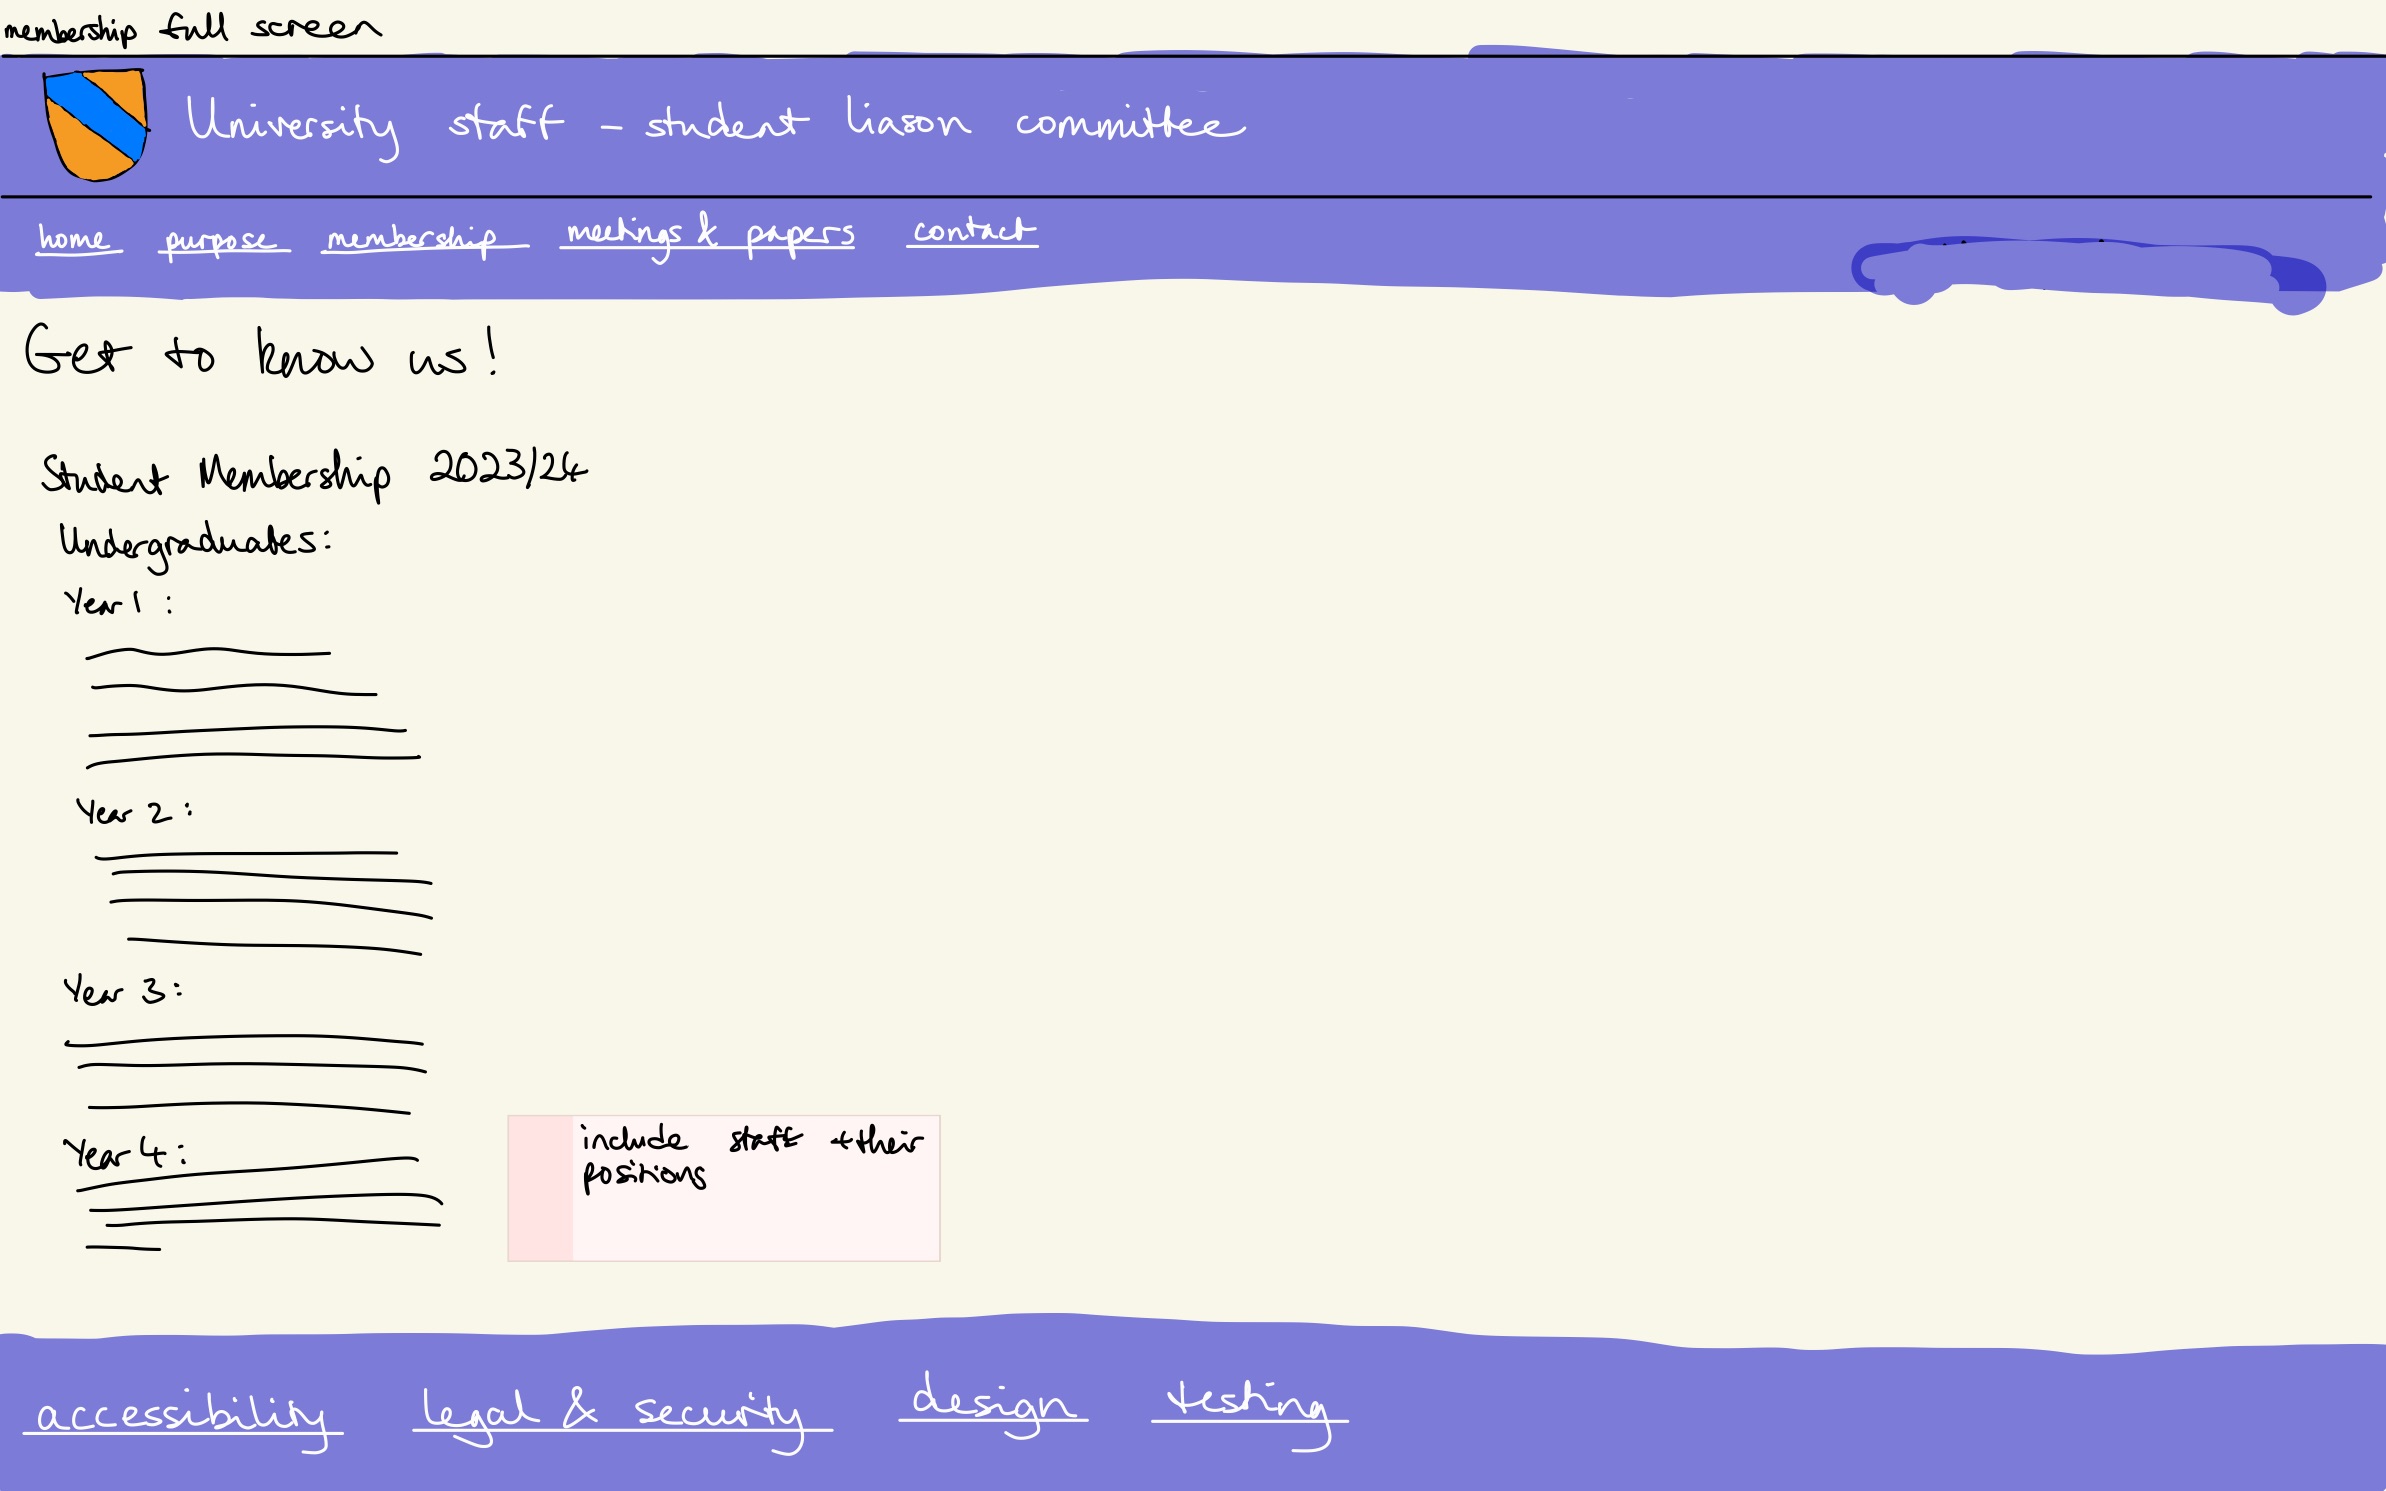 membership full screen
University staff - student liason committee
home purpose membership meetings & papers contact
Get to know us!
Student Membership 2023/24
Undergraduates:
Year 1 :
Year 2 :
Year 3 :
Year 4 :
include staff + their
positions
accessibility legal & security design testing